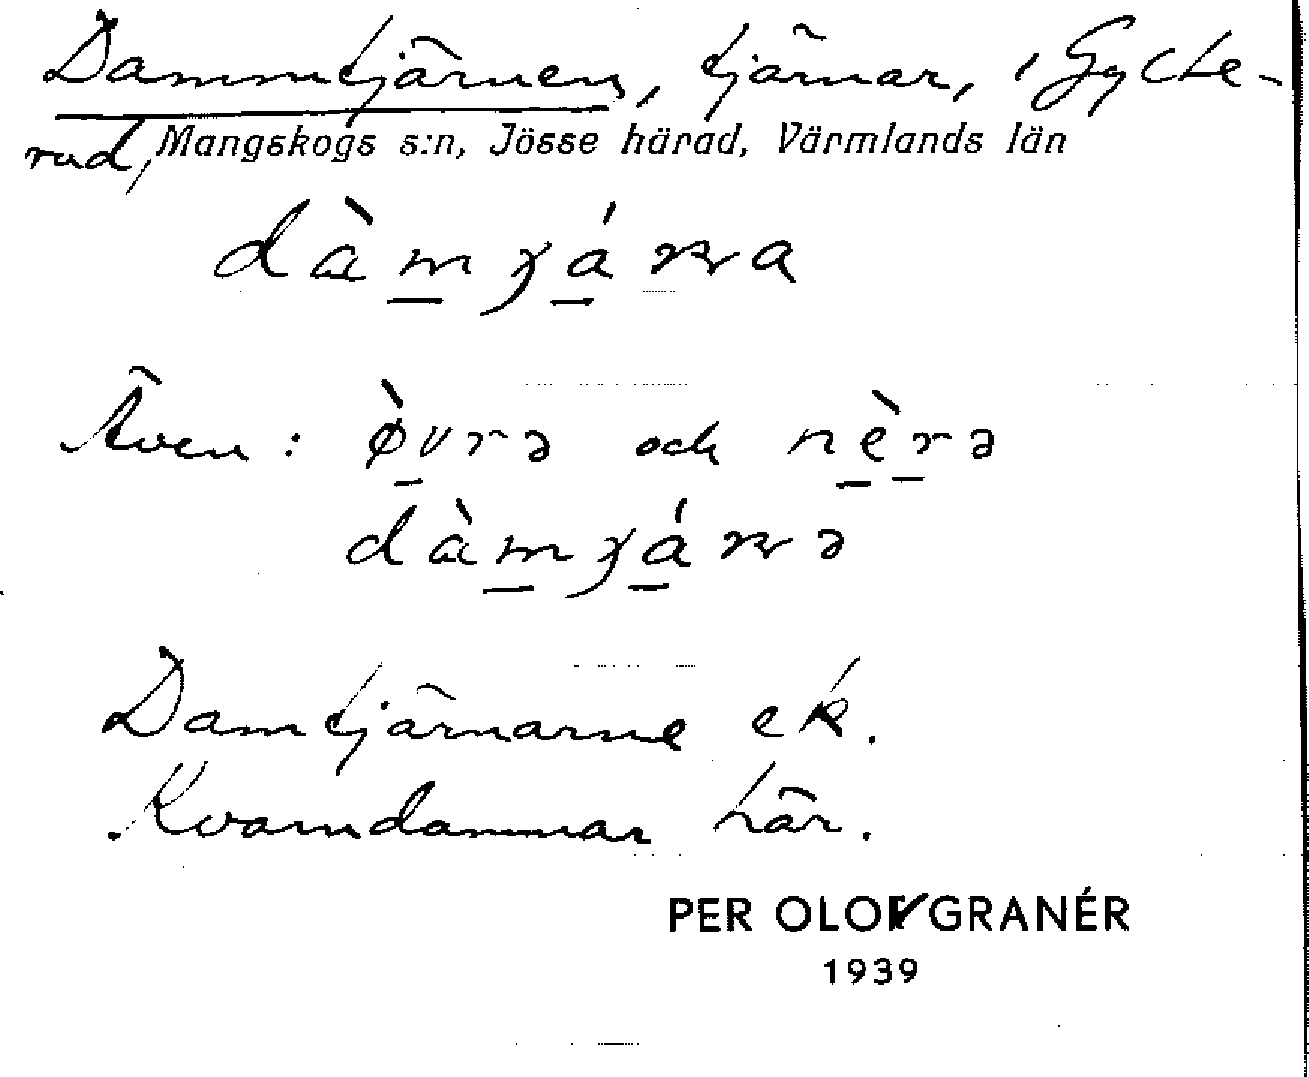 Dammtjärnen, tjärnar, i Gylte-
rud, Mangskogs s:n, Jösse härad, Värmlands län
Även: och
Damtjärnarne ek.
Kvarndammar här.
PER OLOV GRANÉR
1939